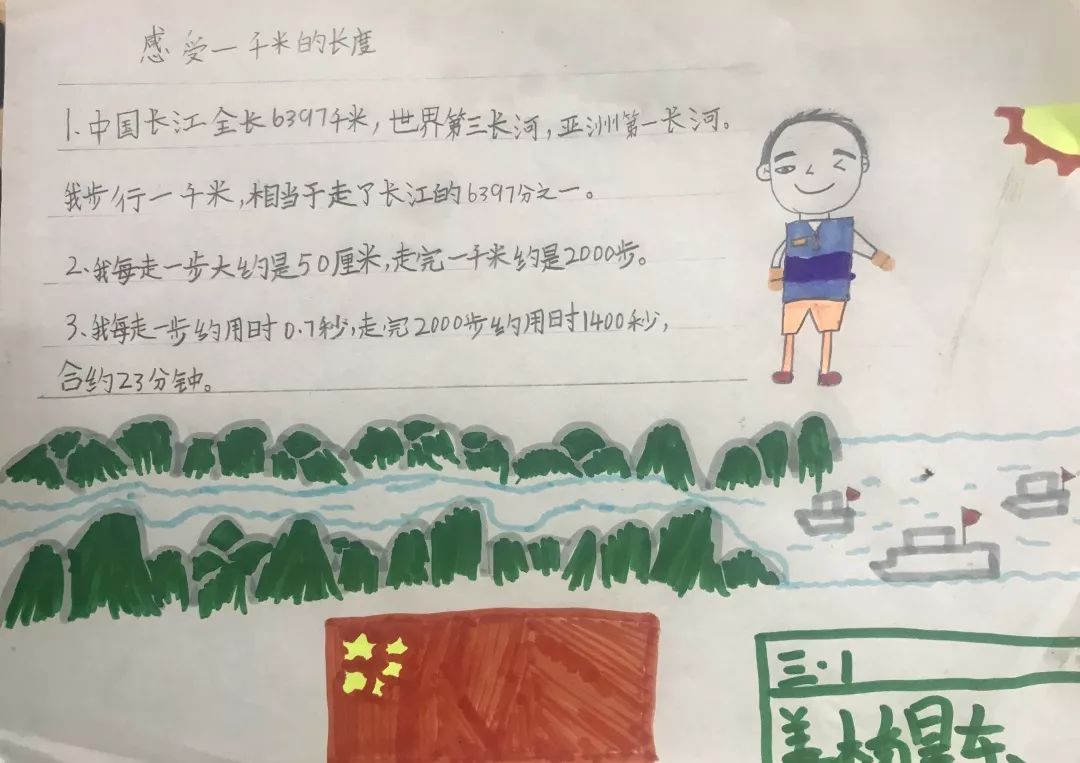 感受一千米的长度
1.中国长江全长6397千米，世界第三长河，亚洲第一长河。
我步行一千米，相当于走了长江的6397分之一。
2.我每走一步大约是50厘米，走完一千米约是2000步。
3.我每走一步约用时0.7秒，走完2000步约用时1400秒，
合约23分钟。
三·1